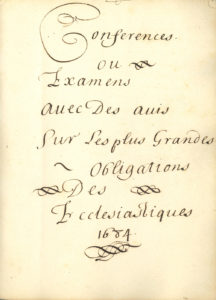 Conferences.
ou
Examens
avec Des avis
Sur Les plus Grandes
Obligations
Des
Ecclesiastiques
1684